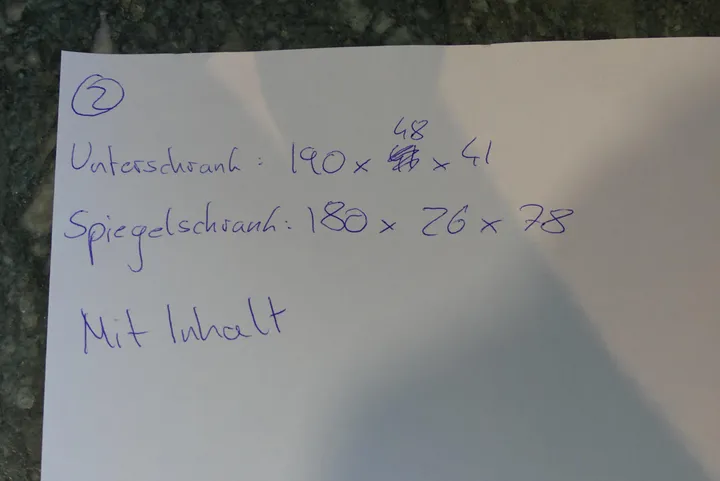 2
Unterschrank: 190 x 48 x 41
Spiegelschrank: 180 x 26 x 78
Mit Inhalt